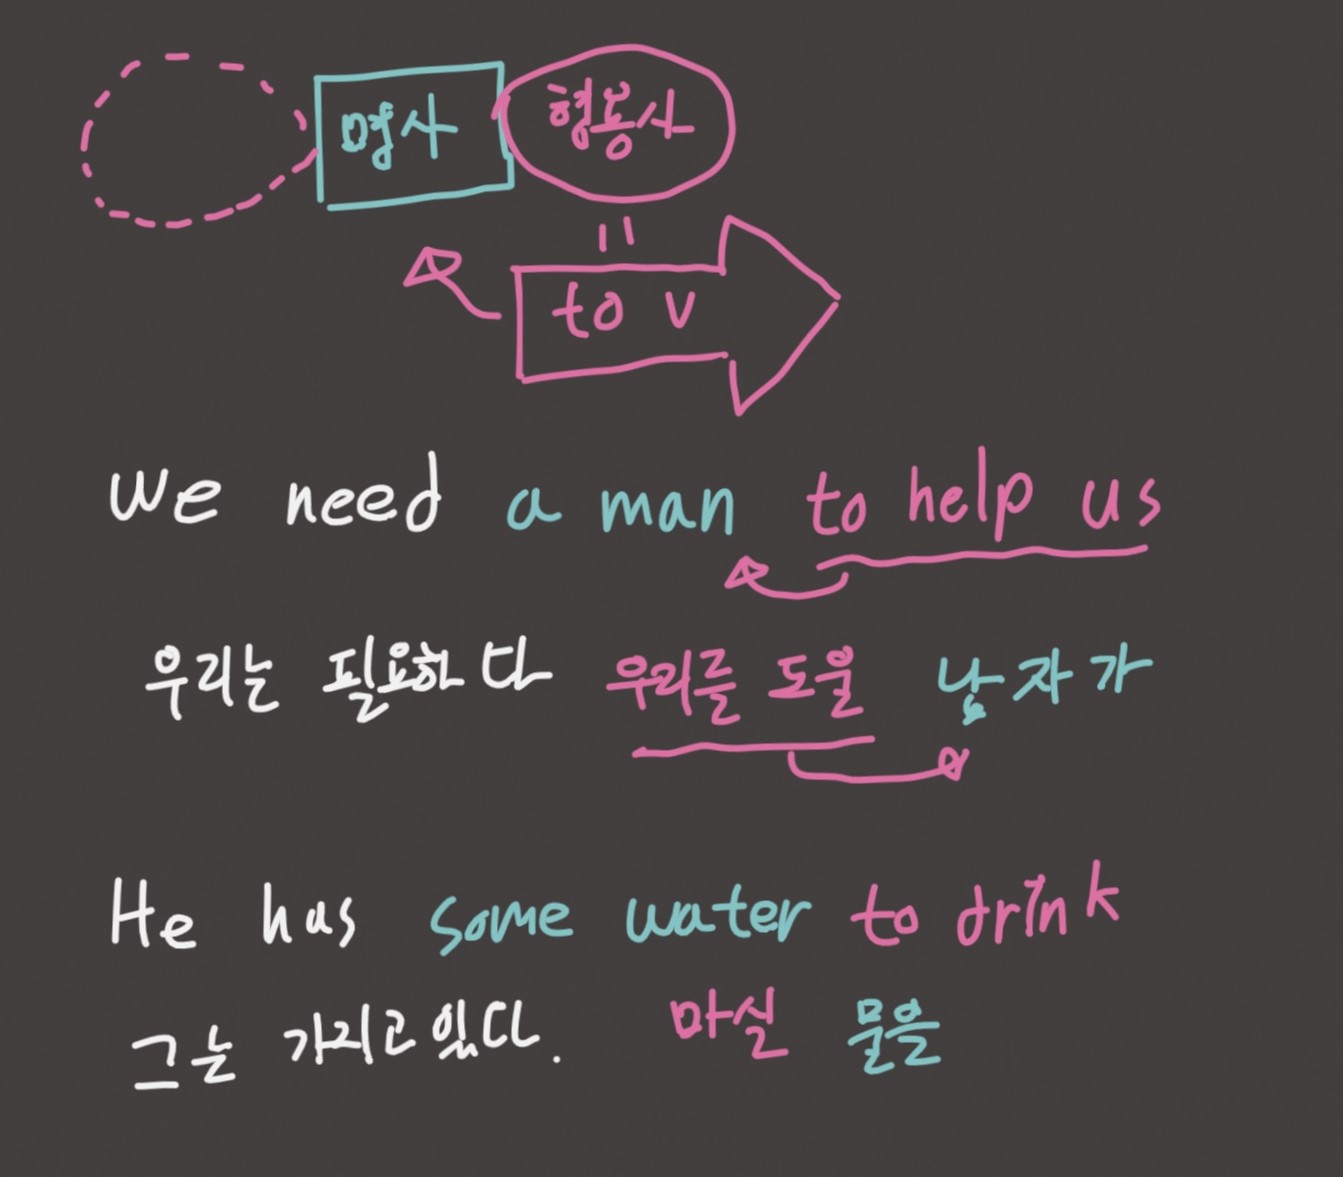 명사 형용사
to v
We need a man to help us
우리는 필요하다 우리를 도울 남자가
He has some water to drink
그는 가지고 있다. 마실 물을